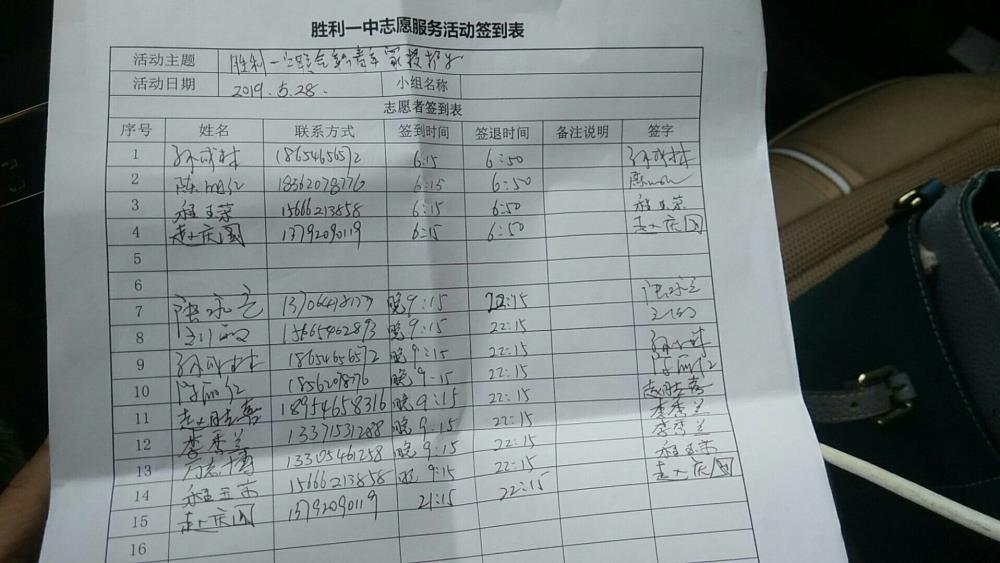 胜利一中志愿服务活动签到表
活动主题 胜利一
活动日期 2019.5.28. 小组名称
志愿者签到表
序号 姓名 联系方式 签到时间 签退时间 备注说明 签字
1 孙成林 18654656572 6:15 6:50 孙成林
2 陈丽红 18562078776 6:15 6:50
3 程玉荣 15666213858 6:15 6:50 程玉荣
4 赵庆国 13792090119 6:15 6:50 赵庆国
5
6
7 张永立 晚9:15 22:15 张永立
8 15665462893 晚9:15 22:15
9 孙成林 18654656572 晚9:15 22:15 孙成林
10 陈丽红 晚9:15 22:15 陈丽红
11 赵胜喜 18954658316 晚9:15 22:15 赵胜喜
12 李秀兰 13371531288 晚9:15 22:15 李秀兰
13 13305461258 晚9:15 22:15 李秀兰
14 程玉荣 15666213858 晚9:15 22:15 程玉荣
15 赵庆国 13792090119 21:15 22:15 赵庆国
16